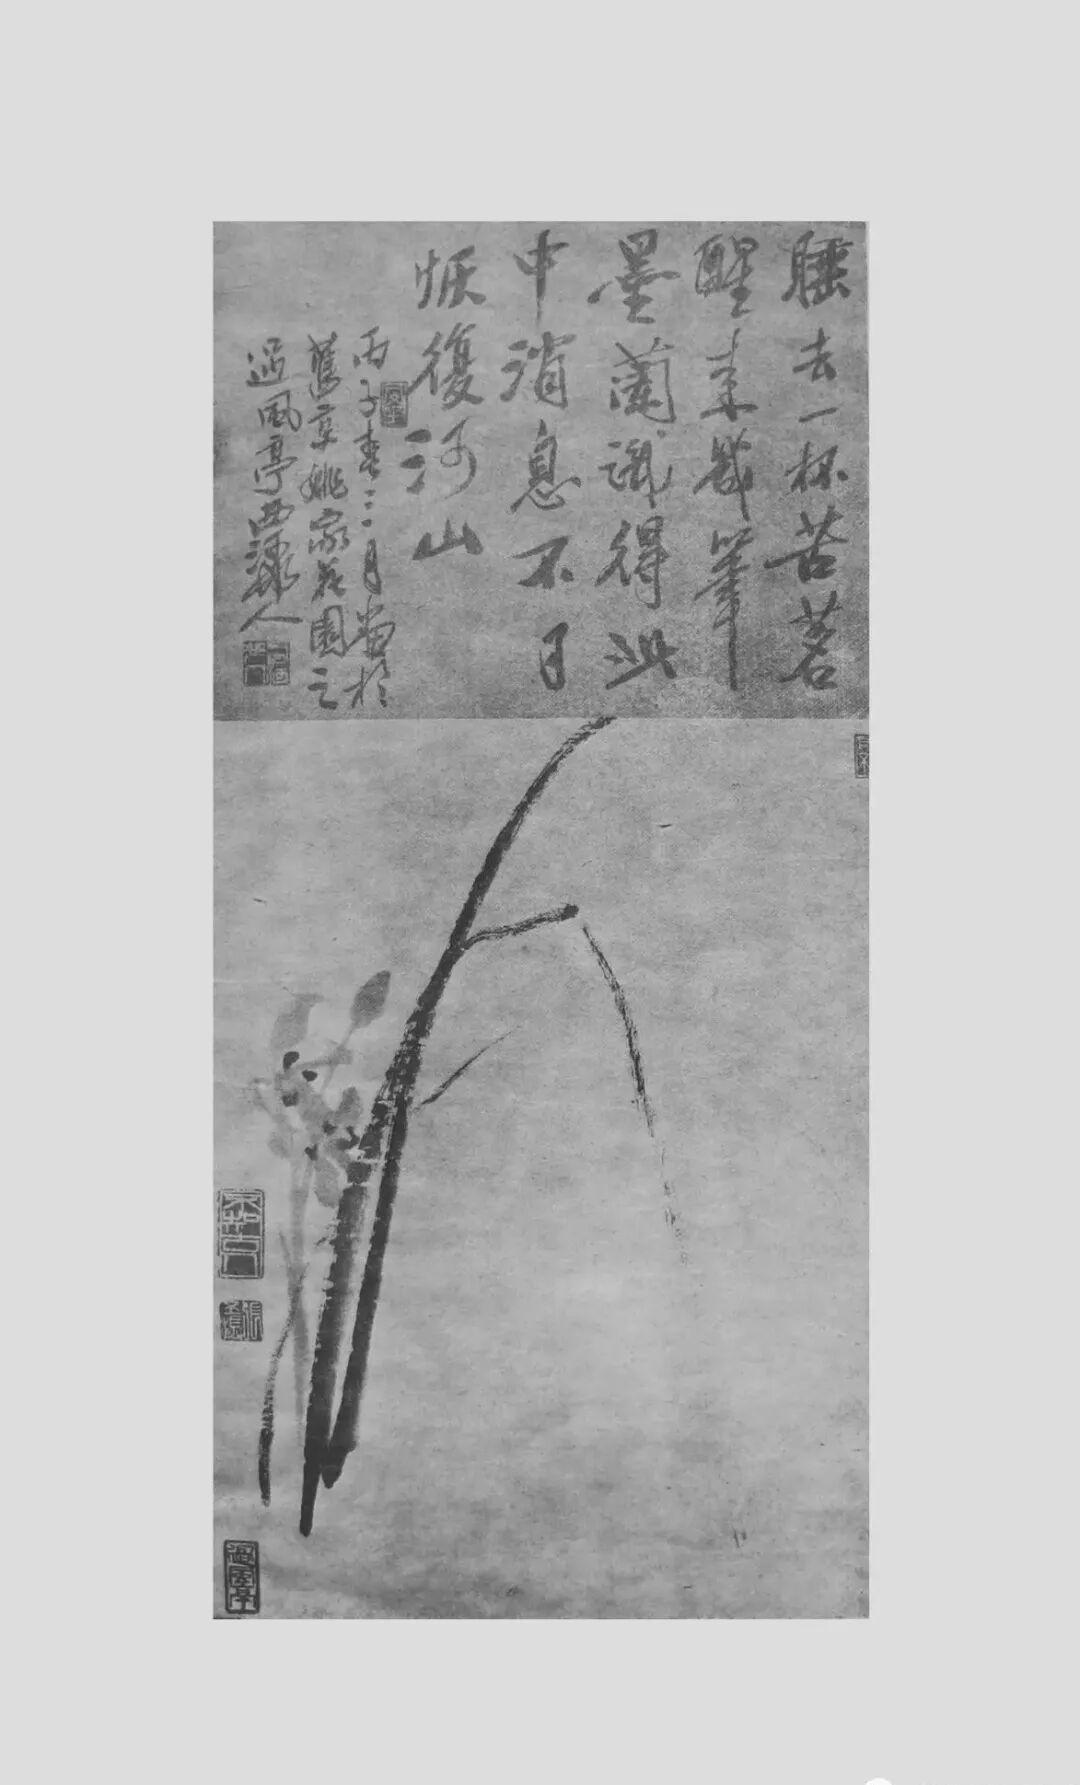 睡去一杯苦茗
醒来幾筆
墨蘭識得此
中消息不日
恢復河山
丙子春三月畫於
舊京姚家花園之
過風亭西濠散人